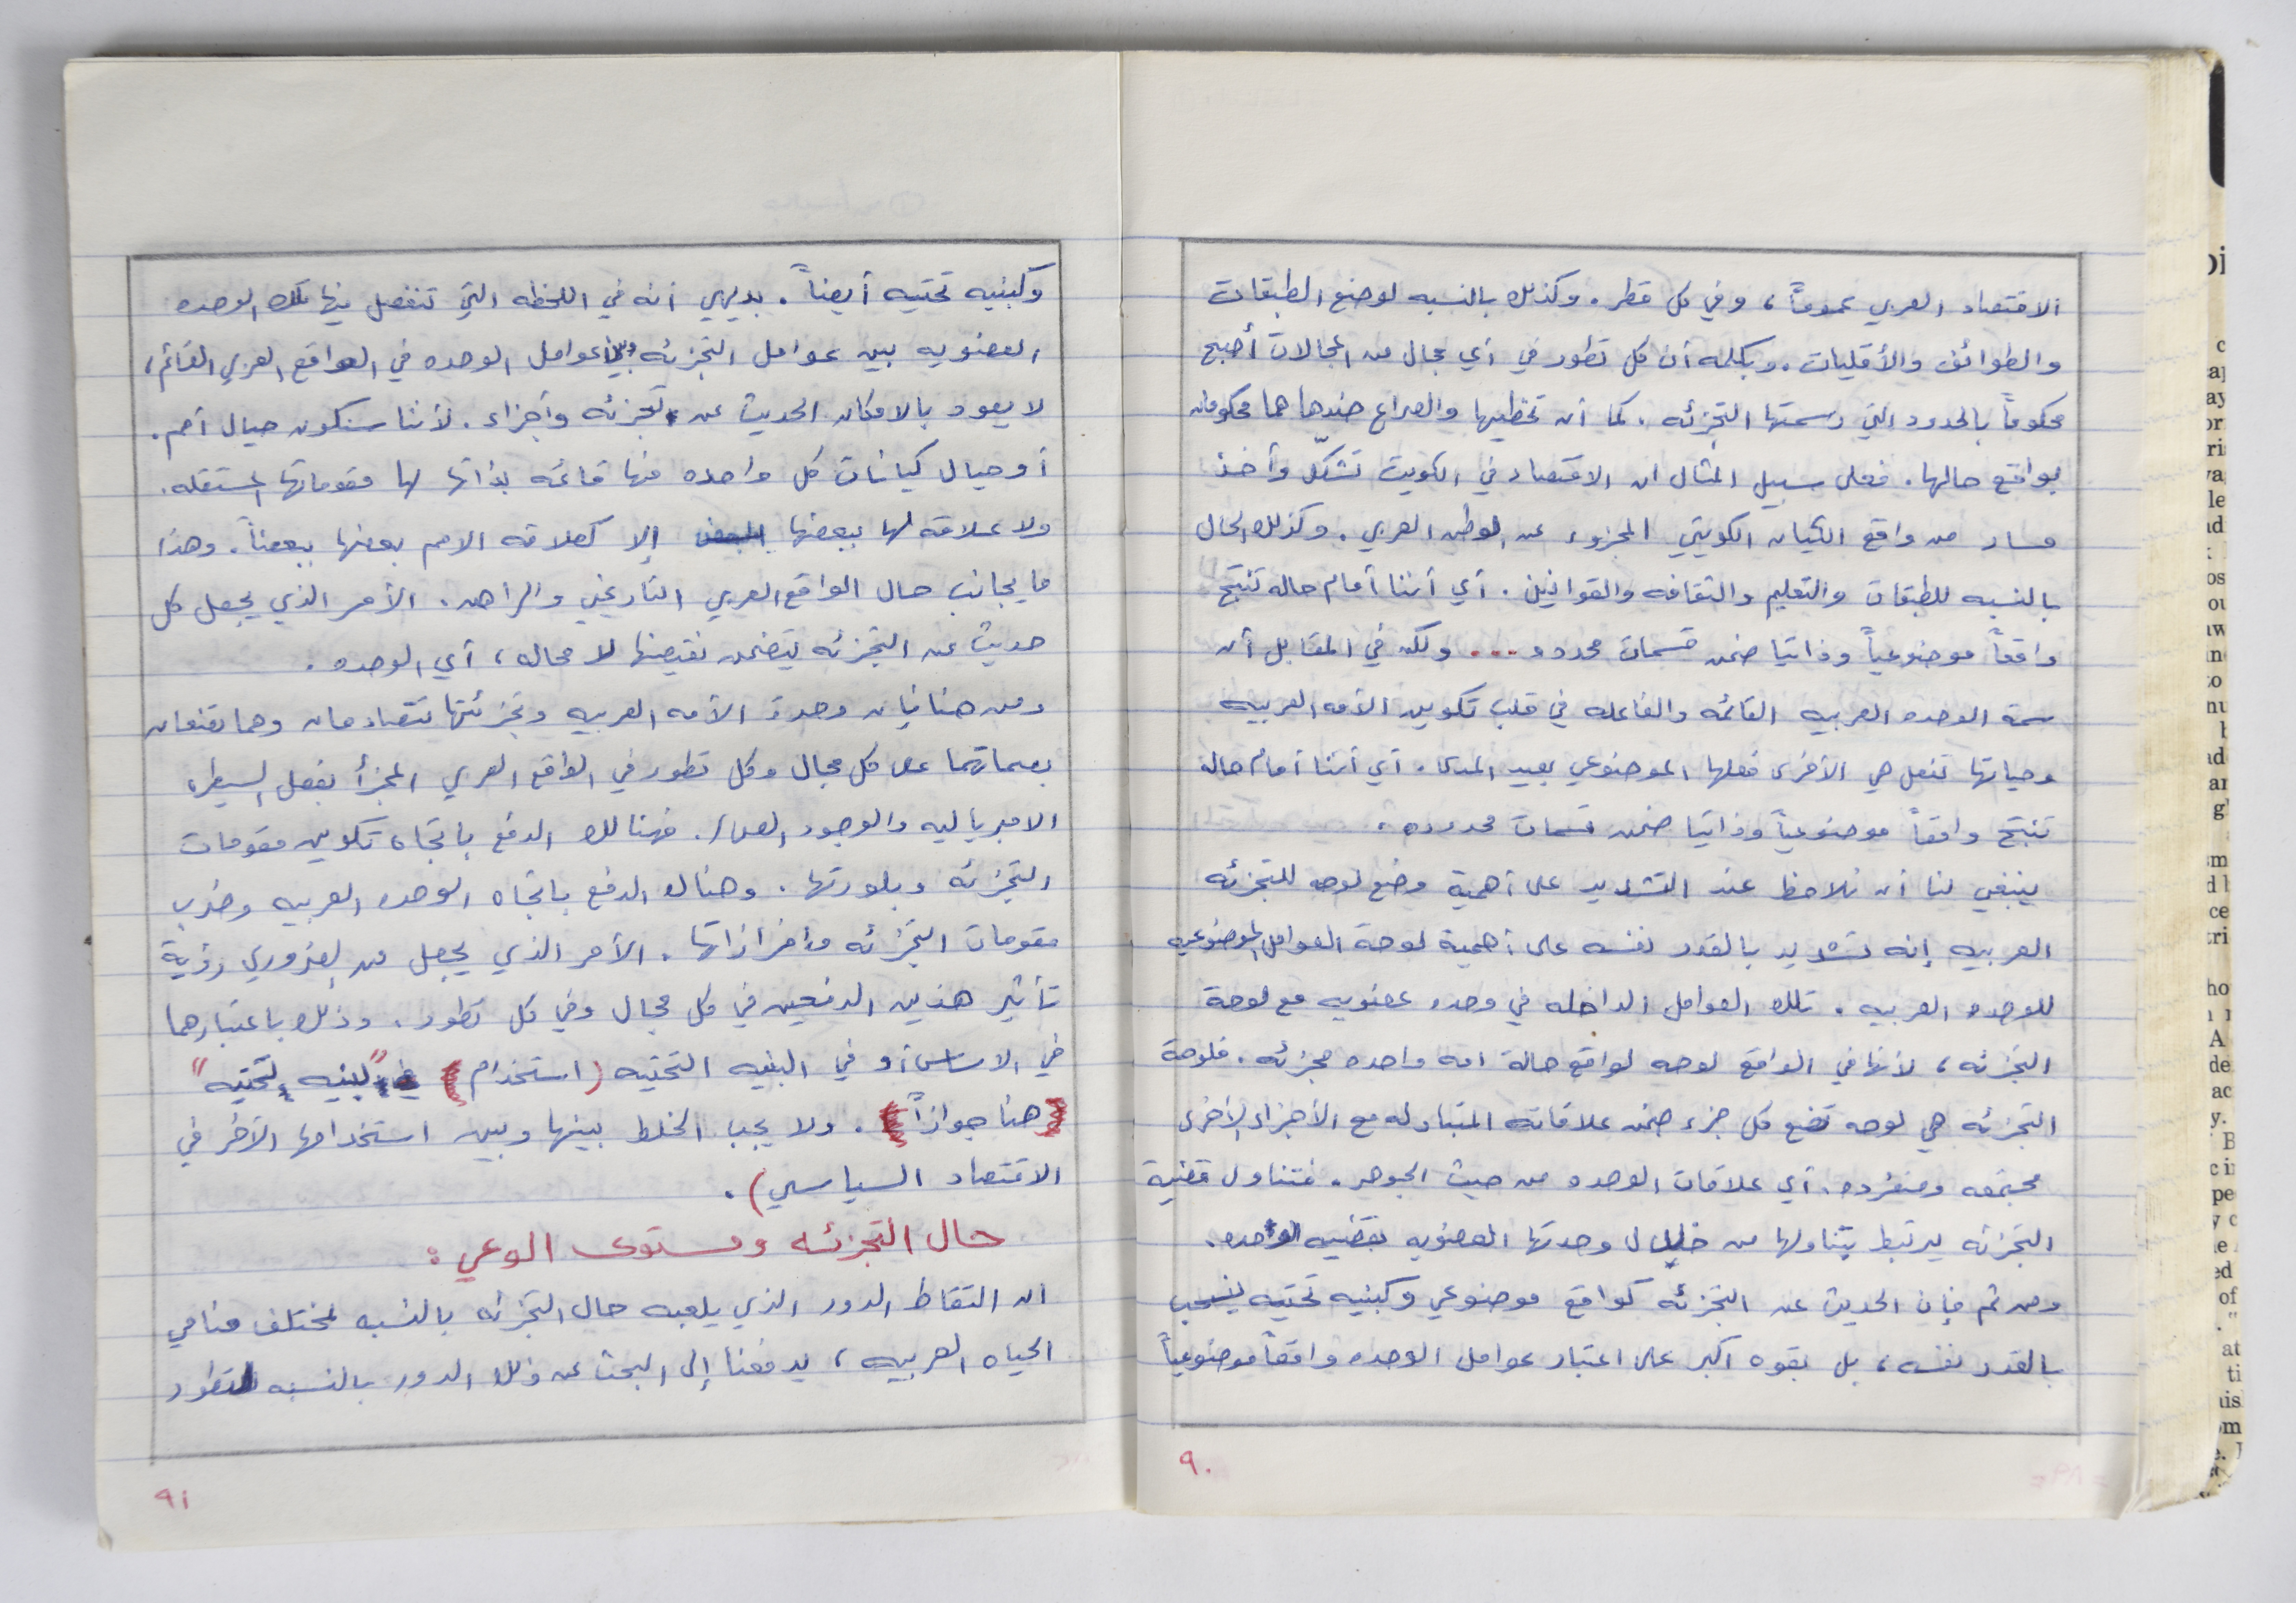 الاقتصاد العربي عموماً، وفي كل قطر. وكذلك بالنسبه لوضع الطبقات
والطوائف والأقليات. وبكلمه أن كل تطور في أي مجال من المجالات أصبح
محكوماً بالحدود التي رسمتها التجزئه. كما أن تخطيها والصراع ضدها هما محكومان
بواقع حالها. فعلى سبيل المثال ان الاقتصاد في الكويت تشكّل وأخذ
مساره من واقع الكيان الكويتي المجزوء عن الوطن العربي. وكذلك الحال
بالنسبه للطبقات والتعليم والثقافه والقوانين. أي أننا أمام حاله تنتج
واقعاً موضوعياً وذاتيا ضمن قسمات محدده... ولكن في المقابل أن
سمة الوحده العربيه القائمه والفاعله في قلب تكوين الأمه العربيه
وحياتها تفعل هي الأخرى فعلها الموضوعي بعيد المدى. أي أننا أمام حاله
تنتج واقعاً موضوعياً وذاتيا ضمن قسمات محدده،
ينبغي لنا أن نلاحظ عند التشديد على أهمية وضع لوحه للتجزئه
العربيه إنه تشديد بالقدر نفسه على أهمية لوحة العوامل الموضوعيه
للوحده العربيه. تلك العوامل الداخله في وحده عضويه مع لوحة
التجزئه، لأنها في الواقع لوحه لواقع حالة امه واحده مجزئه. فلوحة
التجزئه هي لوحه تضع كل جزء ضمن علاقاته المتبادله مع الأجزاء الأخرى
مجتمعه ومنفرده. أي علاقات الوحده من حيث الجوهر. فتناول قضية
التجزئه يرتبط بتناولها من خلال وحدتها العضويه بقضيه الوحده.
ومن ثم فإن الحديث عن التجزئه كواقع موضوعي وكبنيه تحتيه ينسحب
بالقدر نفسه، بل بقوه اكبر على اعتبار عوامل الوحده واقعاً موضوعياً
٩٠
وكبنيه تحتيه أيضاً. بديهي أنه في اللحظه التي تنفصل فيها تلك الوحده
العضويه بين عوامل التجزئه وبين عوامل الوحده في الواقع العربي القائم،
لا يعود بالامكان الحديث عن تجزئه وأجزاء. لأننا سنكون حيال أمم.
أو حيال كيانات كل واحده منها قائمه بذاتها لها مقوماتها المستقله.
ولا علاقه لها ببعضها إلا كعلاقه الامم بعضها ببعضاً. وهذا
ما يجانب حال الواقع العربي التاريخي والراهن. الأمر الذي يجعل كل
حديث عن التجزئه يتضمن نقيضها لا محاله، أي الوحده.
ومن هنا فإن وحدة الأمه العربيه وتجزئتها تتصادمان وهما تضعان
بصماتهما على كل مجال وكل تطور في الواقع العربي المجزأ بفعل السيطره
الامبرياليه والوجود . فهنالك الدفع باتجاه تكوين مقومات
التجزئه وبلورتها. وهناك الدفع باتجاه الوحده العربيه وضرب
مقومات التجزئه وافرازاتها. الأمر الذي يجعل من الضروري رؤية
تأثير هذين الدفعين في كل مجال وفي كل تطور. وذلك باعتبارهما
في الاساس أو في البنيه التحتيه (استخدام "بنيه تحتيه"
هنا جوازاً. ولا يجب الخلط بينها وبين استخدامها الآخر في
الاقتصاد السياسي).
حال التجزئه ومستوى الوعي:
ان التقاط الدور الذي يلعبه حال التجزئه بالنسبه لمختلف مناحي
الحياه العربيه، يدفعنا إلى البحث عن ذلك الدور بالنسبه لتطور
٩١